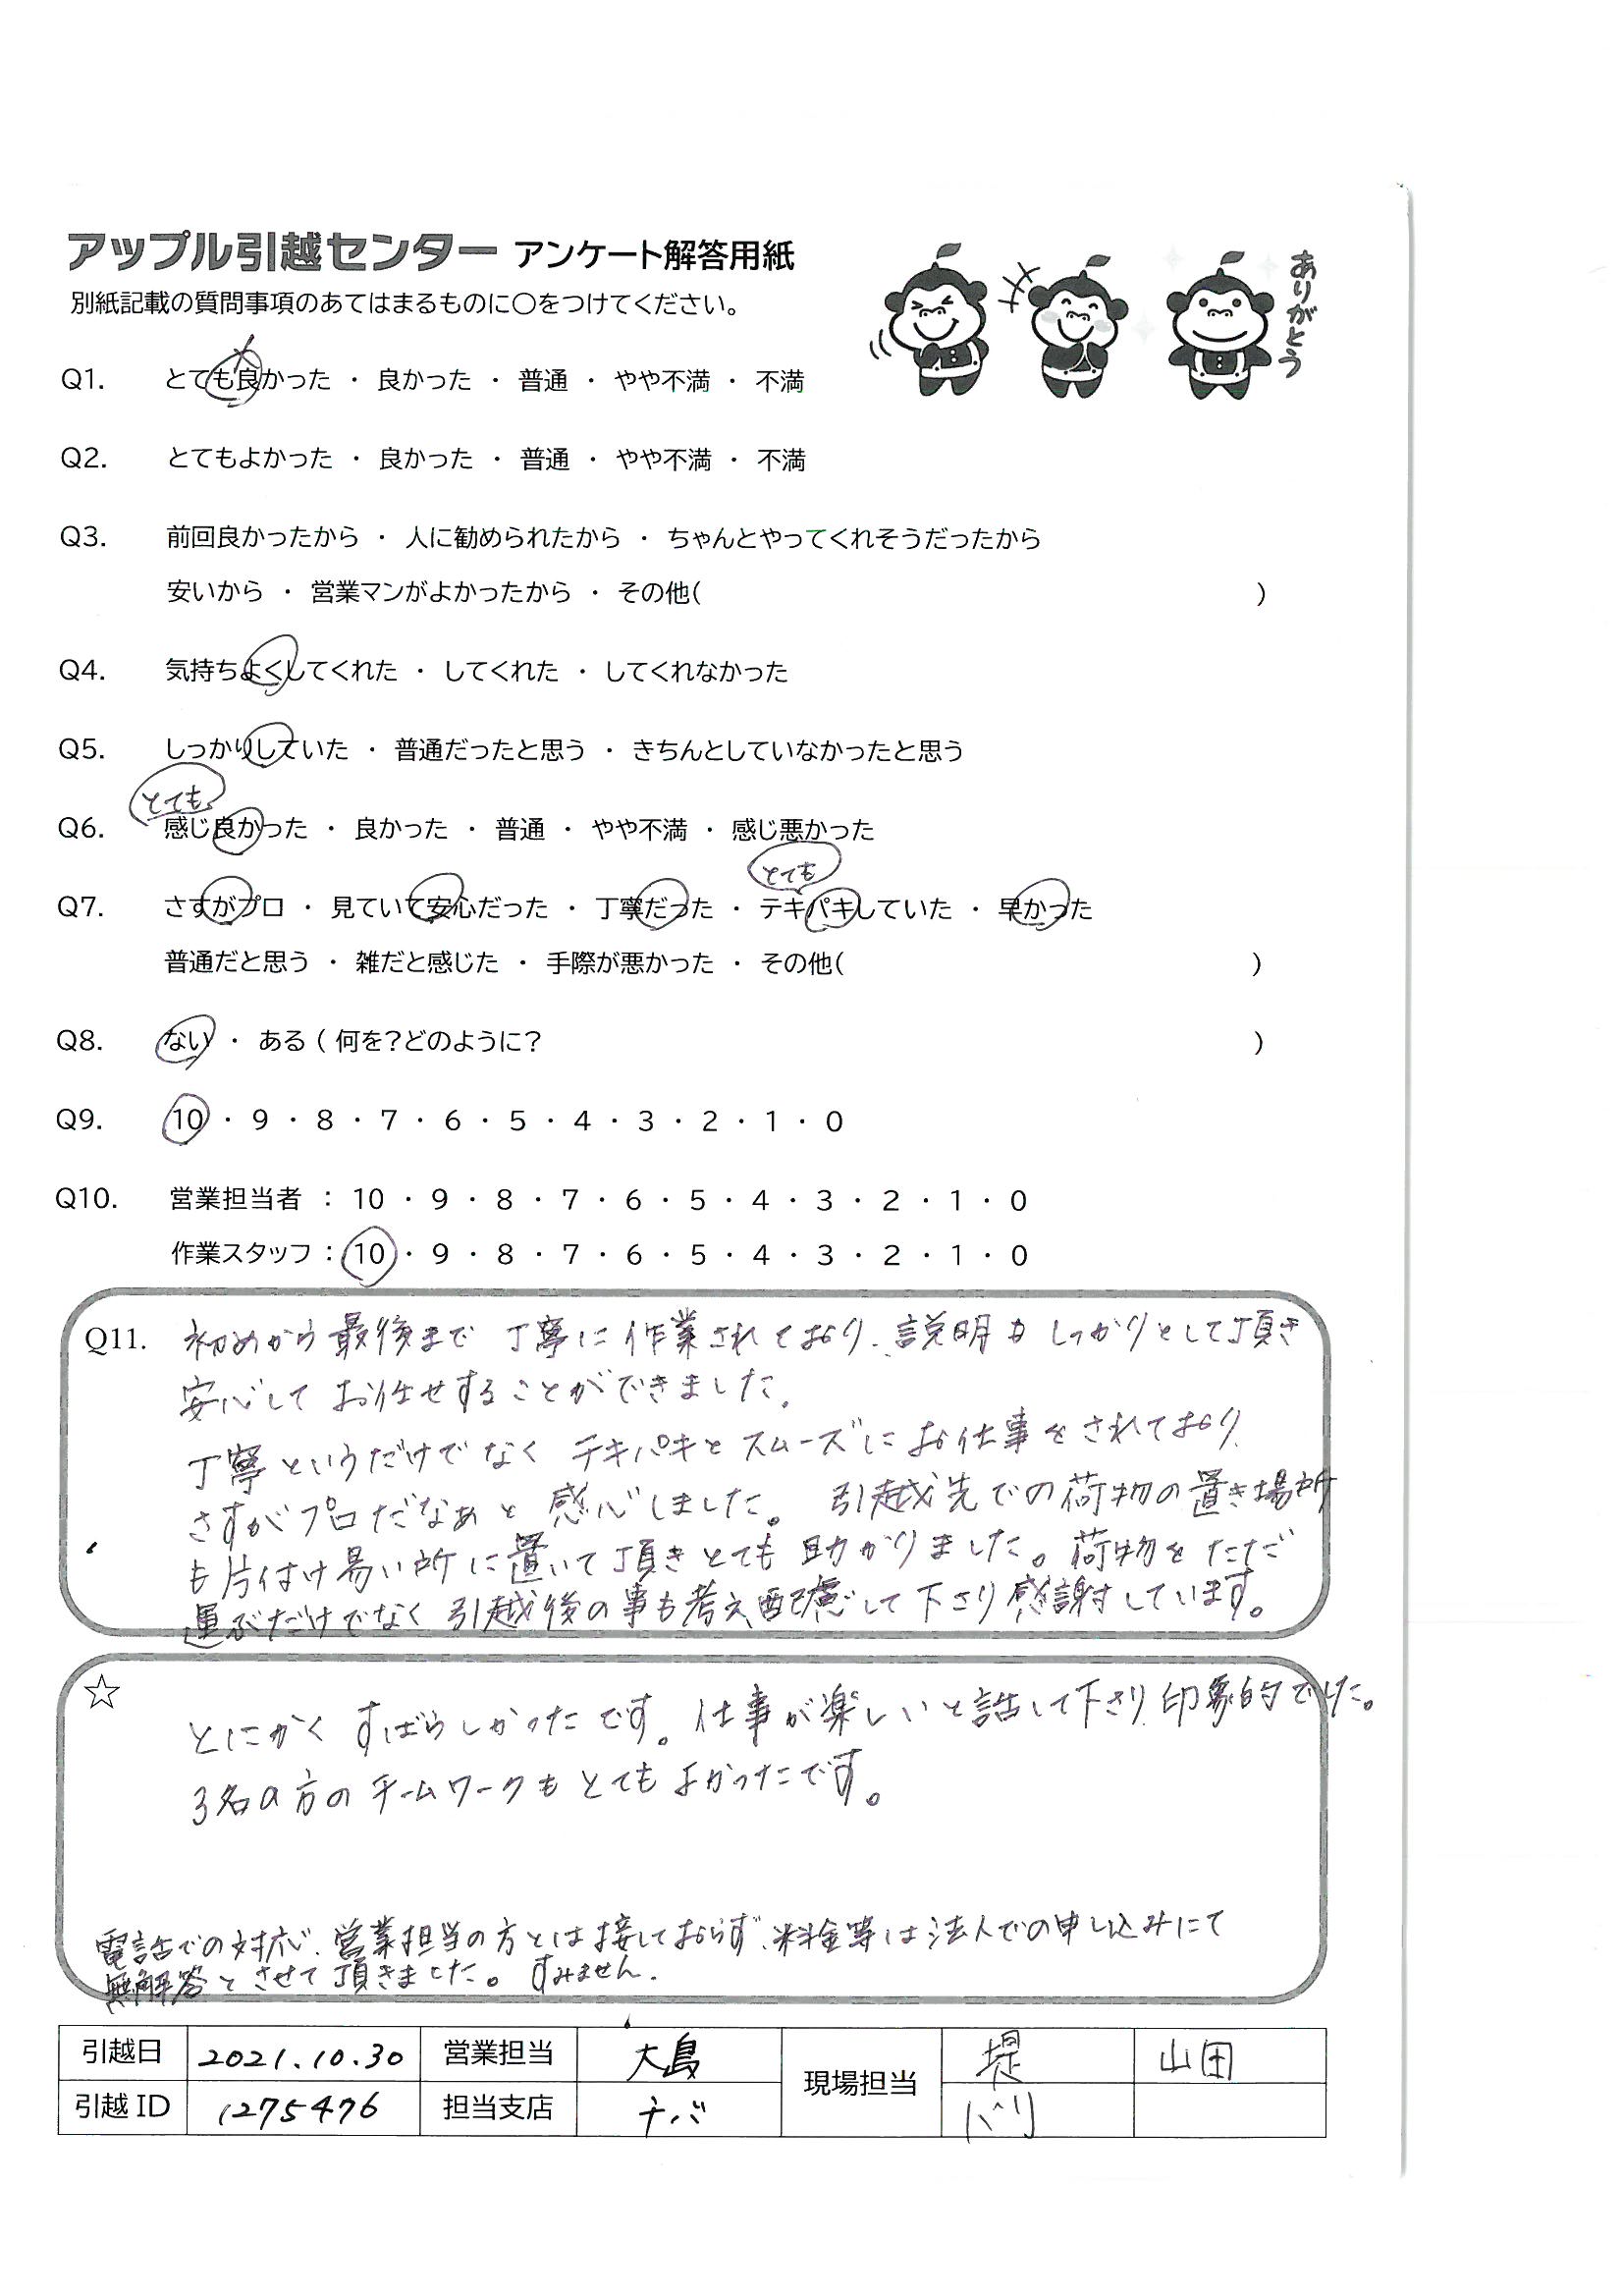 アップル引越センター アンケート解答用紙
ありがとう
別紙記載の質問事項のあてはまるものに○をつけてください。
Q1. とても良かった ・ 良かった ・ 普通 ・ やや不満 ・ 不満
Q2. とてもよかった ・ 良かった ・ 普通 ・ やや不満 ・ 不満
Q3. 前回良かったから ・ 人に勧められたから ・ ちゃんとやってくれそうだったから
安いから ・ 営業マンがよかったから ・ その他( )
Q4. 気持ちよくしてくれた ・ してくれた ・ してくれなかった
Q5. しっかりしていた ・ 普通だったと思う ・ きちんとしていなかったと思う
とても
Q6. 感じ良かった ・ 良かった ・ 普通 ・ やや不満 ・ 感じ悪かった
とても
Q7. さすがプロ ・ 見ていて安心だった ・ 丁寧だった ・ テキパキしていた ・ 早かった
普通だと思う ・ 雑だと感じた ・ 手際が悪かった ・ その他( )
Q8. ない ・ ある ( 何を?どのように? )
Q9. 10 ・ 9 ・ 8 ・ 7 ・ 6 ・ 5 ・ 4 ・ 3 ・ 2 ・ 1 ・ 0
Q10. 営業担当者 : 10 ・ 9 ・ 8 ・ 7 ・ 6 ・ 5 ・ 4 ・ 3 ・ 2 ・ 1 ・ 0
作業スタッフ : 10 ・ 9 ・ 8 ・ 7 ・ 6 ・ 5 ・ 4 ・ 3 ・ 2 ・ 1 ・ 0
Q11. 初めから最後まで丁寧に作業されており、説明もしっかりとして頂き
安心してお任せすることができました。
丁寧というだけでなくテキパキとスムーズにお仕事をされており、
さすがプロだなぁと感心しました。引越先での荷物の置き場所
も片付け易い所に置いて頂きとても助かりました。荷物をただ
運ぶだけでなく引越後の事も考え、配慮して下さり感謝しています。
☆
とにかくすばらしかったです。仕事が楽しいと話して下さり、印象的でした。
3名の方のチームワークもとてもよかったです。
電話での対応、営業担当の方とは接しておらず、料金等は法人での申し込みにて
無解答とさせて頂きました。すみません。
引越日 2021.10.30 営業担当 大島 現場担当 堤 山田
引越ID 1275476 担当支店 チバ バリ